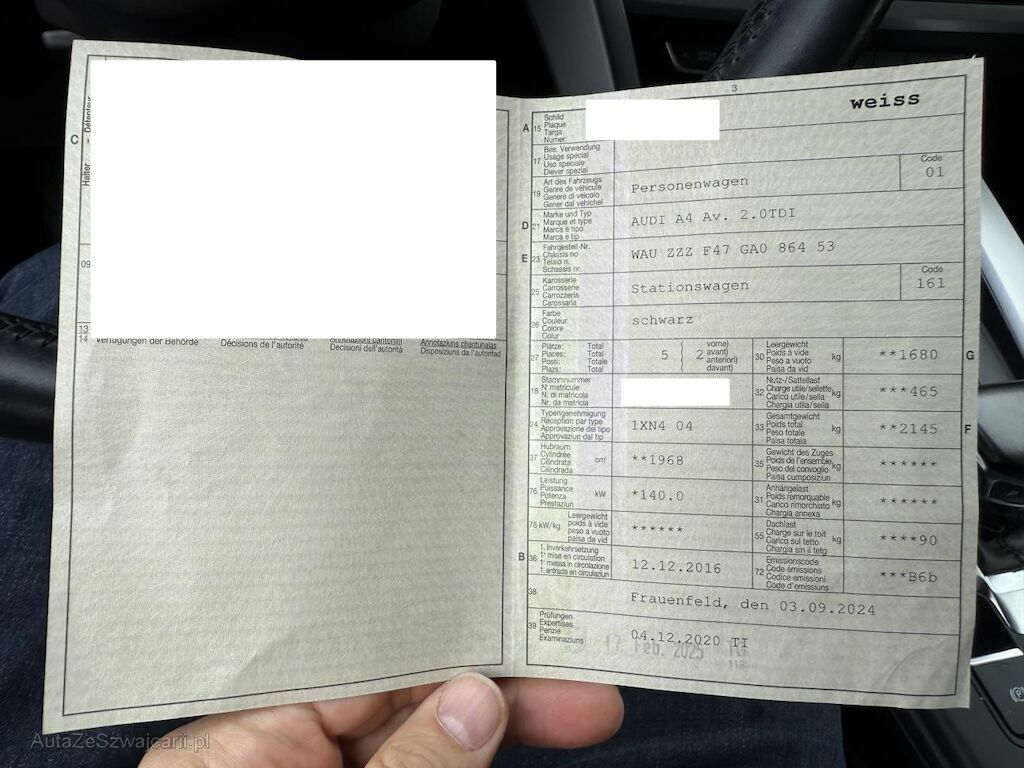 Détenteur
C
Halter
09
13
14
Verfügungen der Behörde
Décisions de l'autorité
Annotazioni cantonali
Decisioni dell'autorità
Annotaziuns chantunalas
Disposiziuns da l'autoritad
3
weiss
A 15 Schild
Plaque
Targa
Numer
17 Bes. Verwendung
Usage spécial
Uso speciale
Diever spezial
19 Art des Fahrzeugs
Genre de véhicule
Genere di veicolo
Gener dal vehichel
Personenwagen
Code
01
D 21 Marke und Typ
Marque et type
Marca e tipo
Marca e tip
AUDI A4 Av. 2.0TDI
E 23 Fahrgestell-Nr.
Châssis no
Telaio n.
Schassis nr.
WAU ZZZ F47 GA0 864 53
25 Karosserie
Carrosserie
Carrozzeria
Carossaria
Stationswagen
Code
161
26 Farbe
Couleur
Colore
Colur
schwarz
27 Plätze: Total
Places: Total
Posti: Totale
Plazs: Total
5 ( 2 vorne)
avant)
anteriori)
davant)
30 Leergewicht
Poids à vide
Peso a vuoto
Paisa da vid
kg
**1680
G
18 Stammnummer
N° matricule
N. di matricola
Nr. da matricla
32 Nutz-/Sattellast
Charge utile/sellette
Carico utile/sella
Chargia utila/sella
kg
***465
24 Typengenehmigung
Réception par type
Approvazione del tipo
Approvaziun dal tip
1XN4 04
33 Gesamtgewicht
Poids total
Peso totale
Paisa totala
kg
**2145
F
37 Hubraum
Cylindrée
Cilindrata
Cilindrada
cm³
**1968
35 Gewicht des Zuges
Poids de l'ensemble
Peso del convoglio
Paisa cumposiziun
kg
******
76 Leistung
Puissance
Potenza
Prestaziun
kW
*140.0
31 Anhängelast
Poids remorquable
Carico rimorchiato
Chargia annexa
kg
******
78 kW/kg Leergewicht
poids à vide
peso a vuoto
paisa da vid
******
55 Dachlast
Charge sur le toit
Carico sul tetto
Chargia sin il tetg
kg
****90
B 36 1. Inverkehrsetzung
1re mise en circulation
1a messa in circolazione
1. entrada en circulaziun
12.12.2016
72 Emissionscode
Code émissions
Codice emissioni
Code d'emissiuns
***B6b
38
Frauenfeld, den 03.09.2024
39 Prüfungen
Expertises
Perizie
Examinaziuns
04.12.2020 TI
17. Feb. 2025 TG
113
AutaZeSzwajcarii.pl